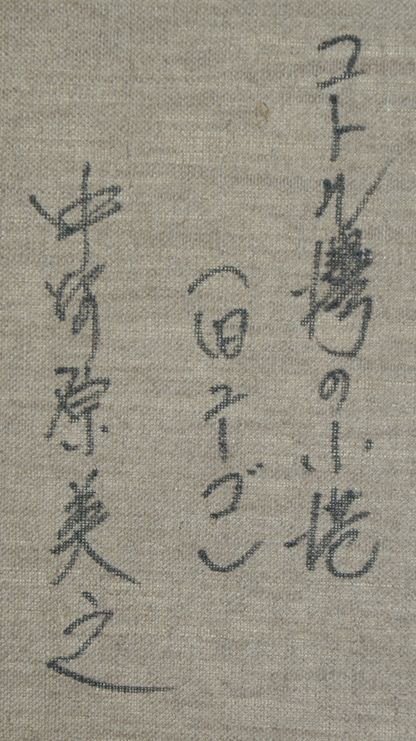 コトル湾の小港
(旧ユーゴ)
中原美之